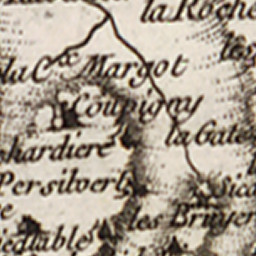 la Roche
les
la C.x Margot
Coupigny
la Gate
hardiere
Persilvert
les Bruyer